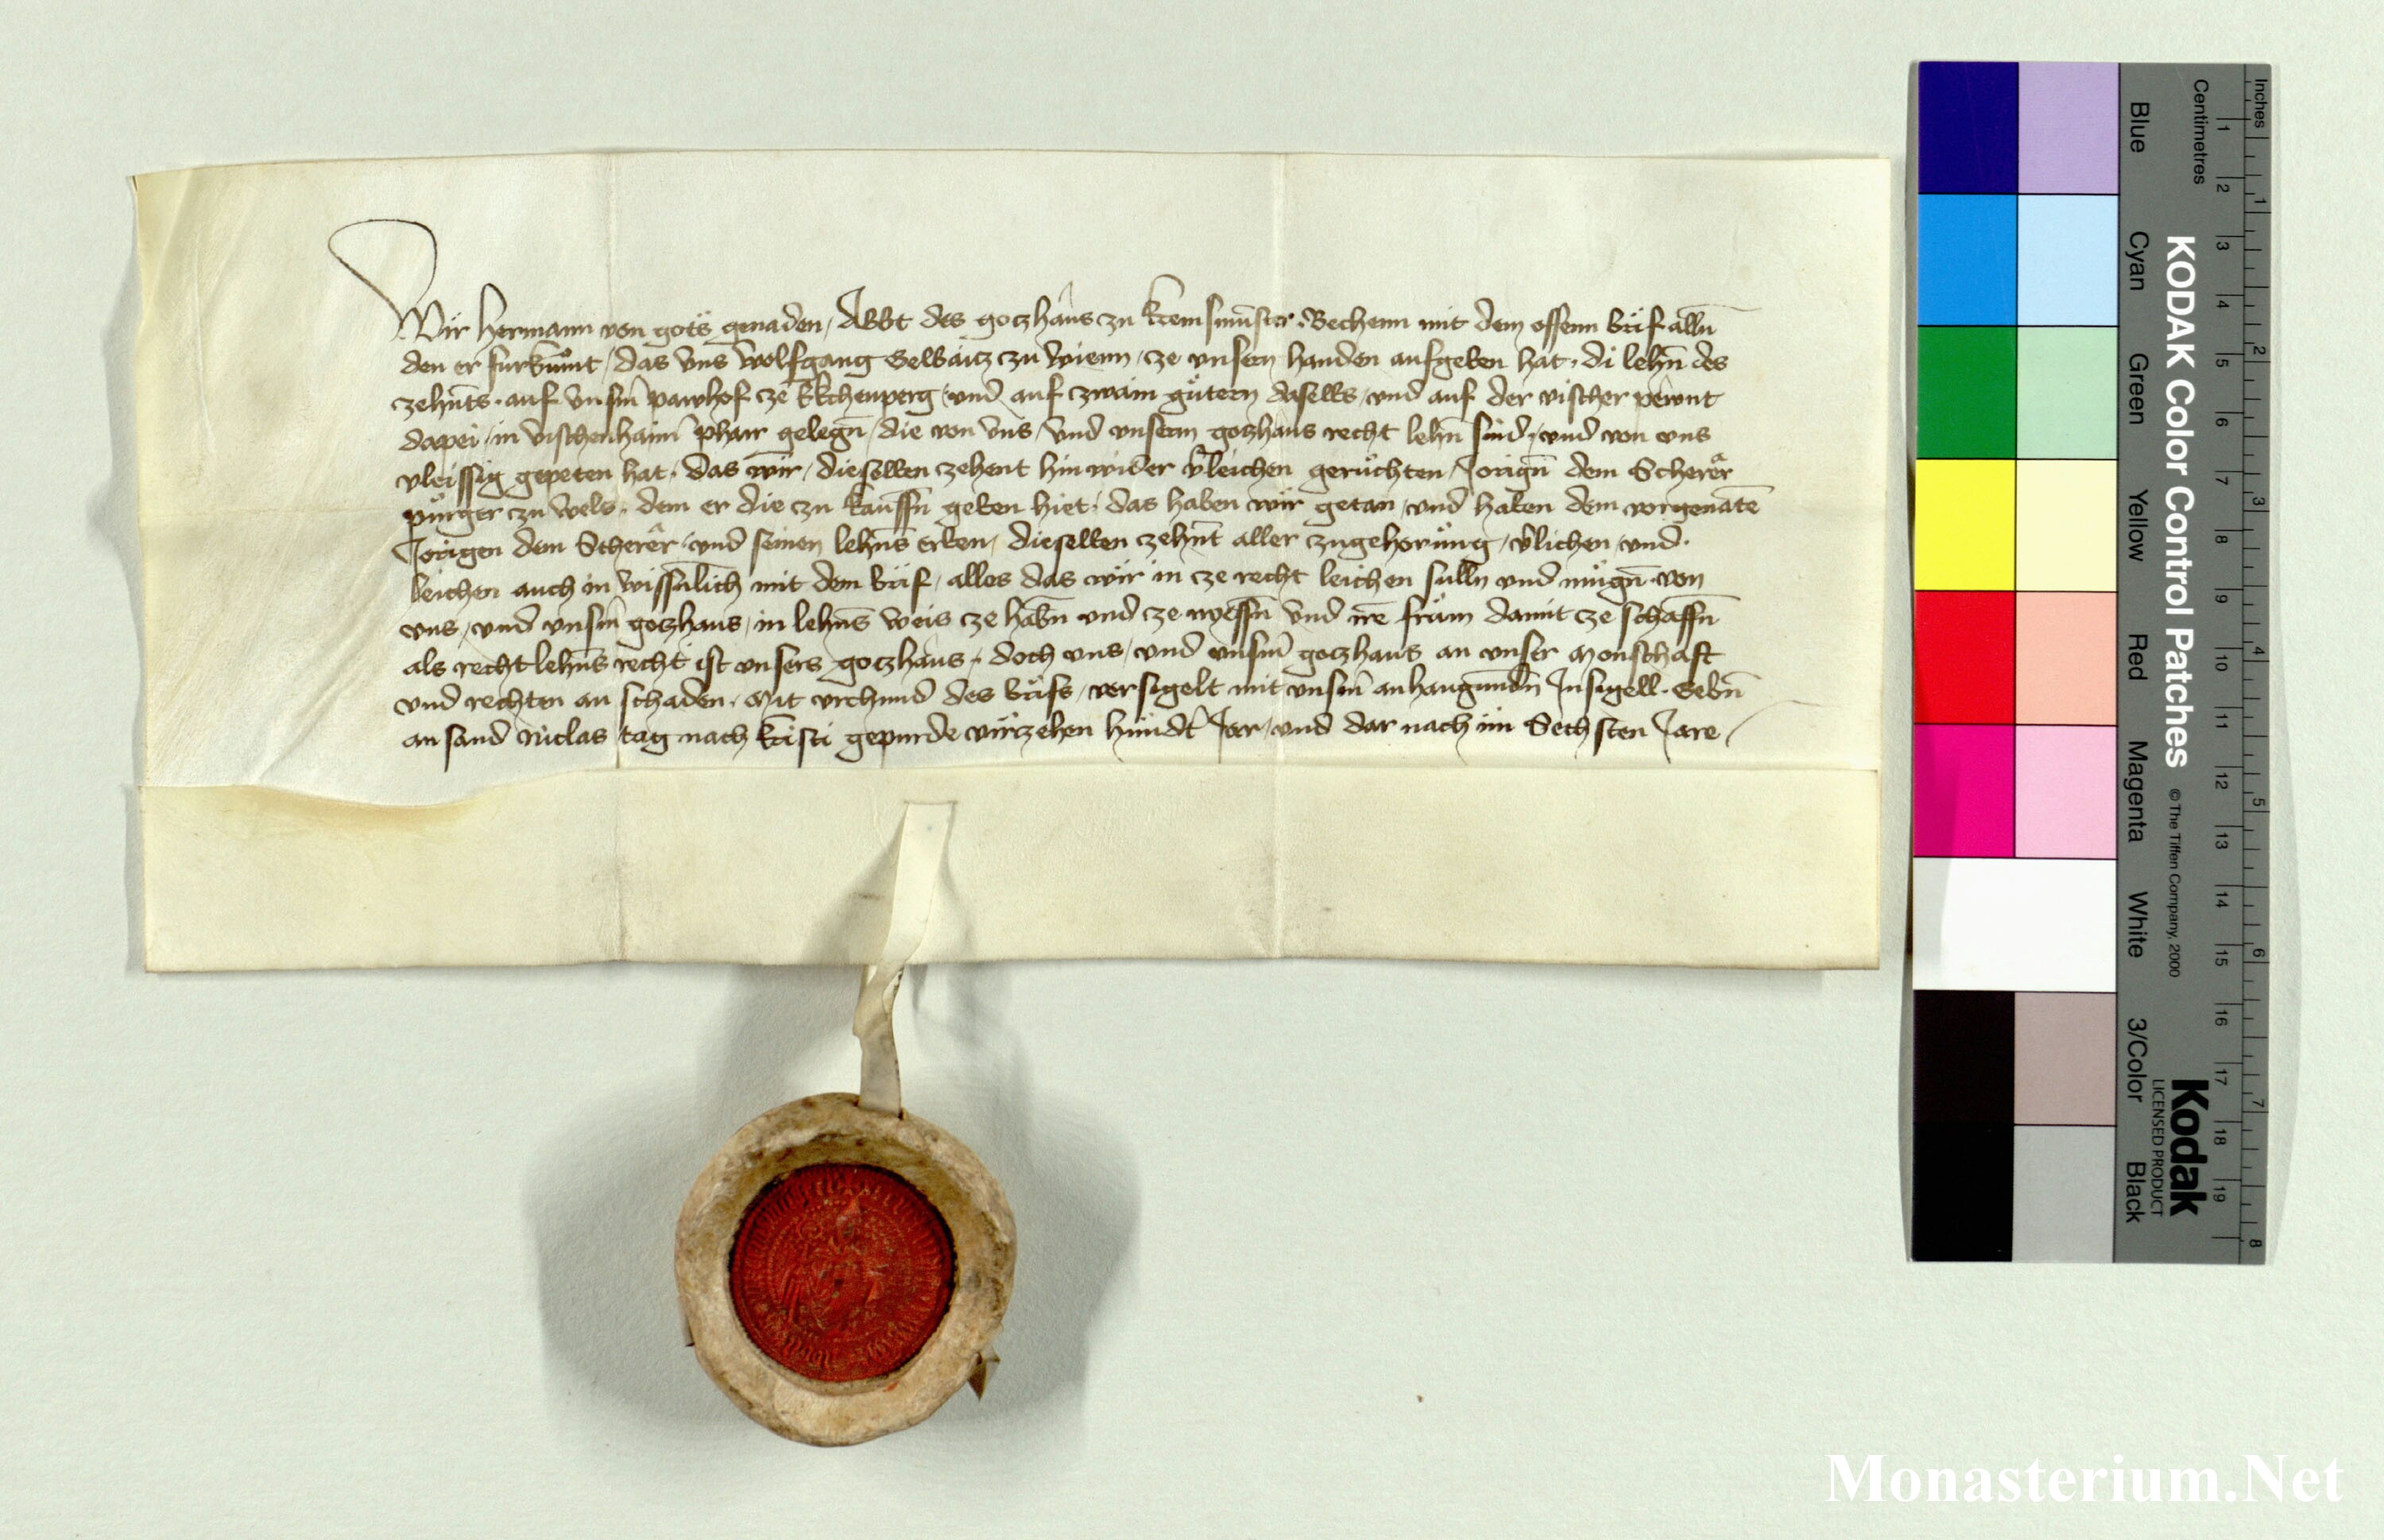 Wir Hermann von gots genaden / Abbt des goczhaus zu Kremsmunster. Bechenn mit dem offenn brif allen
den er furkumt / das vns Wolfgang zu Wienn / ze vnsern handen aufgeben hat. di lehn des
zehents. auf vnserm pawhof ze / vnd auf zwain gütern daselbs / vnd auf der vischer pewnt
dapei / in vischenhaimer pharr gelegen / die von vns / vnd vnserm goczhaus recht lehn sind / vnd von vns
vleissig gepeten hat. das wir / dieselben zehent hin wider verleichen geruchten / Jorign dem Scherer
purger zu Wels. dem er die zu kauffn geben hiet. das haben wir getan / vnd haben dem vorgenaten
Jorigen dem Scherer / vnd seinen lehns erben / dieselben zehnt aller zugehorung / verlichen / vnd.
leichen auch in wissnlich mit dem brif / alles das wir in ze recht leichen sulln vnd mugn. von
vns / vnd vnserm goczhaus / in lehns weis ze habn vnd ze nyessn vnd ire frum damit ze schaffn
als recht lehns recht ist vnsers goczhaus. doch vns / vnd vnserm goczhaus an vnser monschaft
vnd rechten an schaden. Mit vrchund des brifs / versigelt mit vnserm anhangundn Insigell. Gebn
an sand Niclas tag nach Kristi gepurde virzehen hundert Jar / vnd dar nach im Sechsten Jare /
Inches
Centimetres
1 2 3 4 5 6 7 8
1 2 3 4 5 6 7 8 9 10 11 12 13 14 15 16 17 18 19
KODAK Color Control Patches
© The Tiffen Company, 2000
Kodak
LICENSED PRODUCT
Blue
Cyan
Green
Yellow
Red
Magenta
White
3/Color
Black
Monasterium.Net